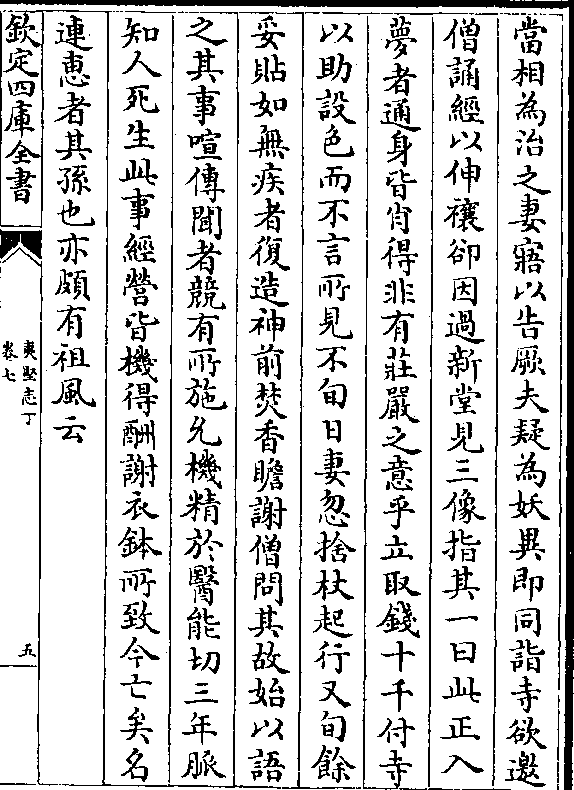 當相為治之妻寤以告厥夫疑為妖異即同詣寺欲邀
僧誦經以伸禳卻因過新堂見三像指其一曰此正入
夢者通身皆肖得非有莊嚴之意乎立取錢十千付寺
以助設色而不言所見不旬日妻忽捨杖起行又旬餘
妥貼如無疾者復造神前焚香瞻謝僧問其故始以語
之其事喧傳聞者競有所施允機精於醫能切三年脈
知人死生此事經營皆機得酬謝衣鉢所致今亡矣名
連恵者其孫也亦頗有祖風云
欽定四庫全書
夷堅志丁
卷七
五